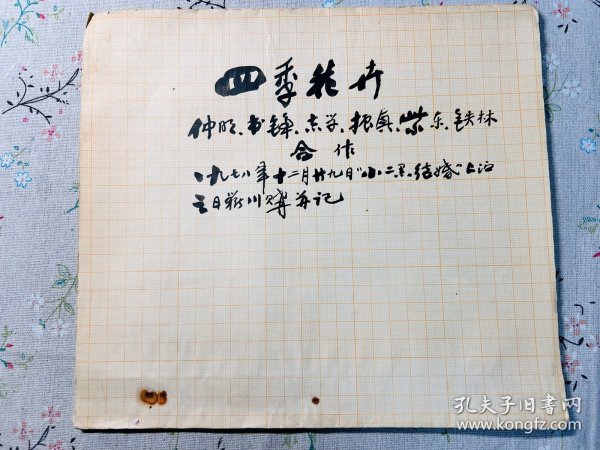 四季花卉
仲明、书锋、志学、振真、紫东、铁林
合作
一九七八年十二月廿九日"小二黑结婚"上演
之日 川赠并记
孔夫子旧书网
www.kongfz.com